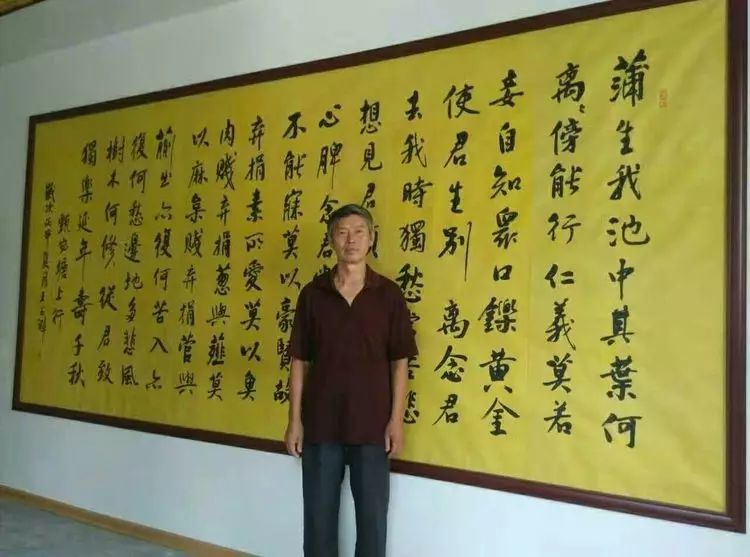 蒲生我池中其葉何
离〻傍能行仁義莫若
妾自知眾口鑠黃金
使君生别離念君
去我時獨愁常苦悲
想見君
心脾念君常
不能寐莫以豪賢故
弃捐素所愛莫以魚
肉賤弃捐葱與薤莫
以麻枲賤弃捐菅與
蒯出亦復何苦入亦
復何愁邊地多悲風
樹木何修〻從君致
獨樂延年壽千秋
甄宓塘上行
歲次丙申夏月王